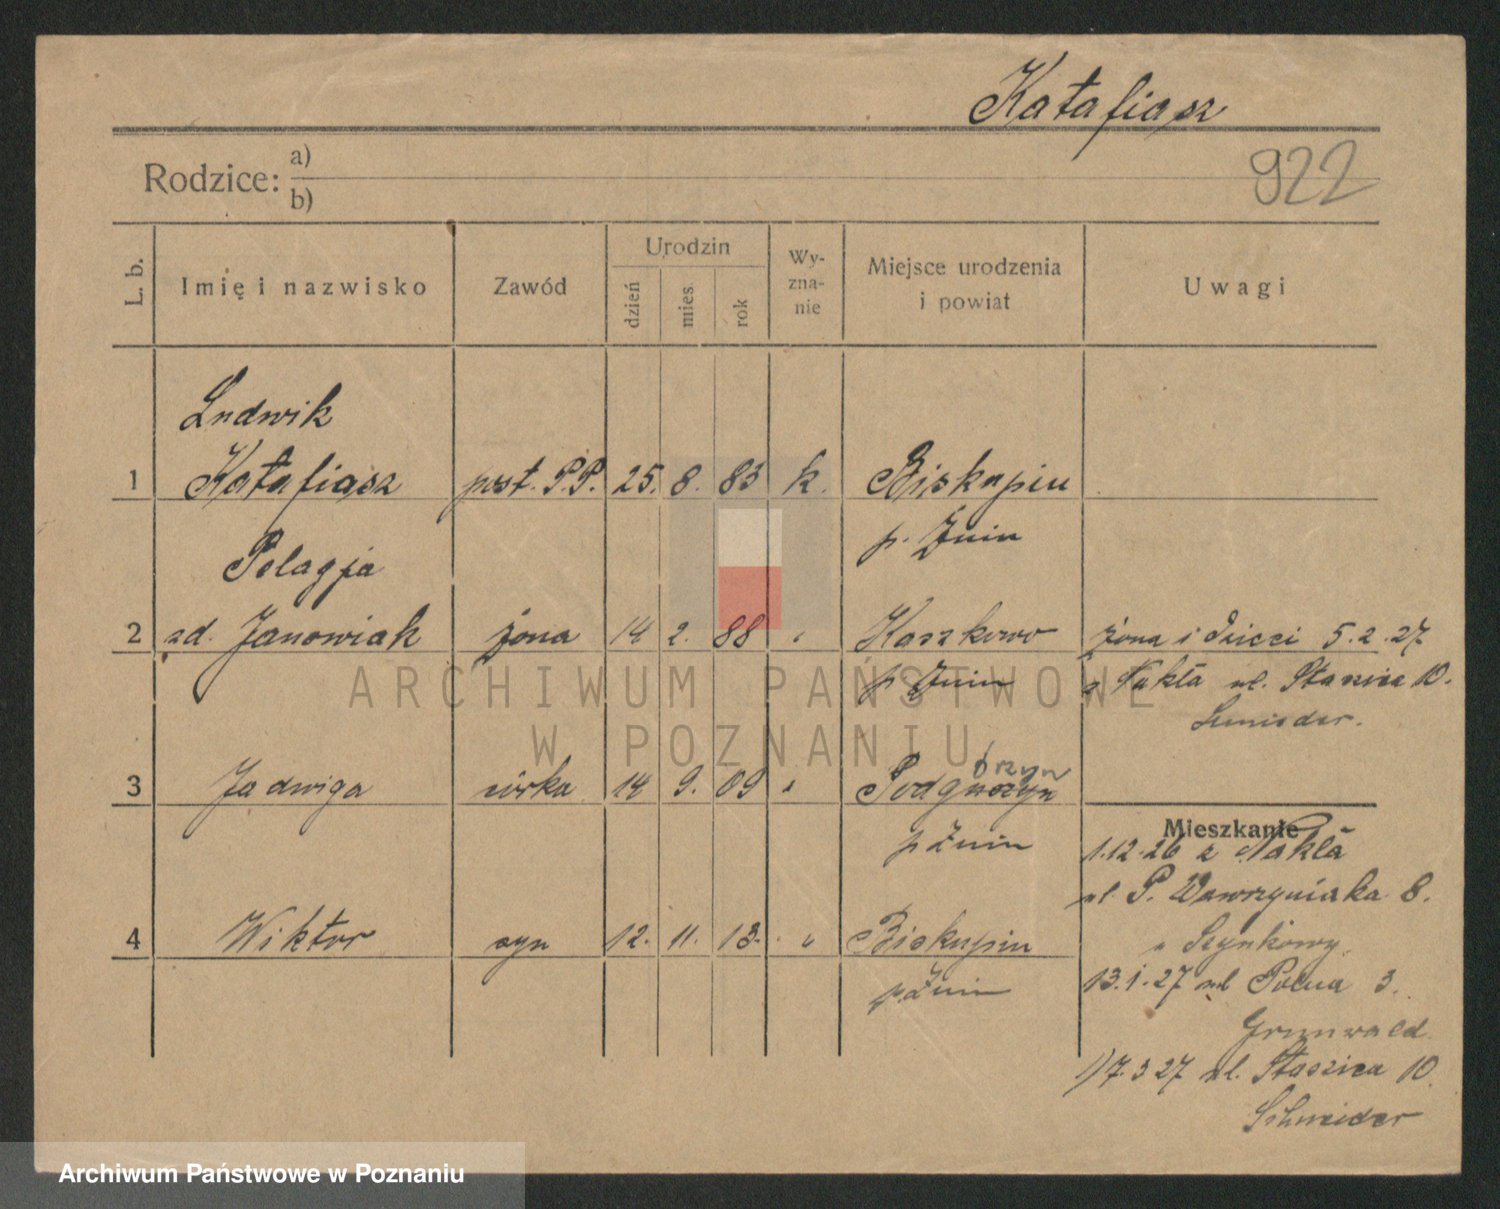 Katafiasz
922
Rodzice:
a)
b)
L. b.
Imię i nazwisko
Zawód
Urodzin
dzień
mies.
rok
Wy-
zna-
nie
Miejsce urodzenia
i powiat
Uwagi
Ludwik
1 Katafiasz post. P.P. 25. 8. 83 k. Biskupin
p. Żnin
Pelagja
2 zd. Janowiak żona 14 2. 88 " Kaszkowo żona i dzieci 5.2.27
p Żnin z Nakła ul. Staszica 10.
3 Jadwiga córka 14 9. 09 "
brzyn
p Żnin
Mieszkanie
1.12.26 z Nakła
ul. P. Wawrzyniaka 8.
4 Wiktor syn 12. 11. 13. " Biskupin
" Szynkowy
p. Żnin
13.1.27 ul Polna 3.
Grunwald
1) 7.3 27 ul. Staszica 10.
Schneider
ARCHIWUM PAŃSTWOWE
W POZNANIU
Archiwum Państwowe w Poznaniu